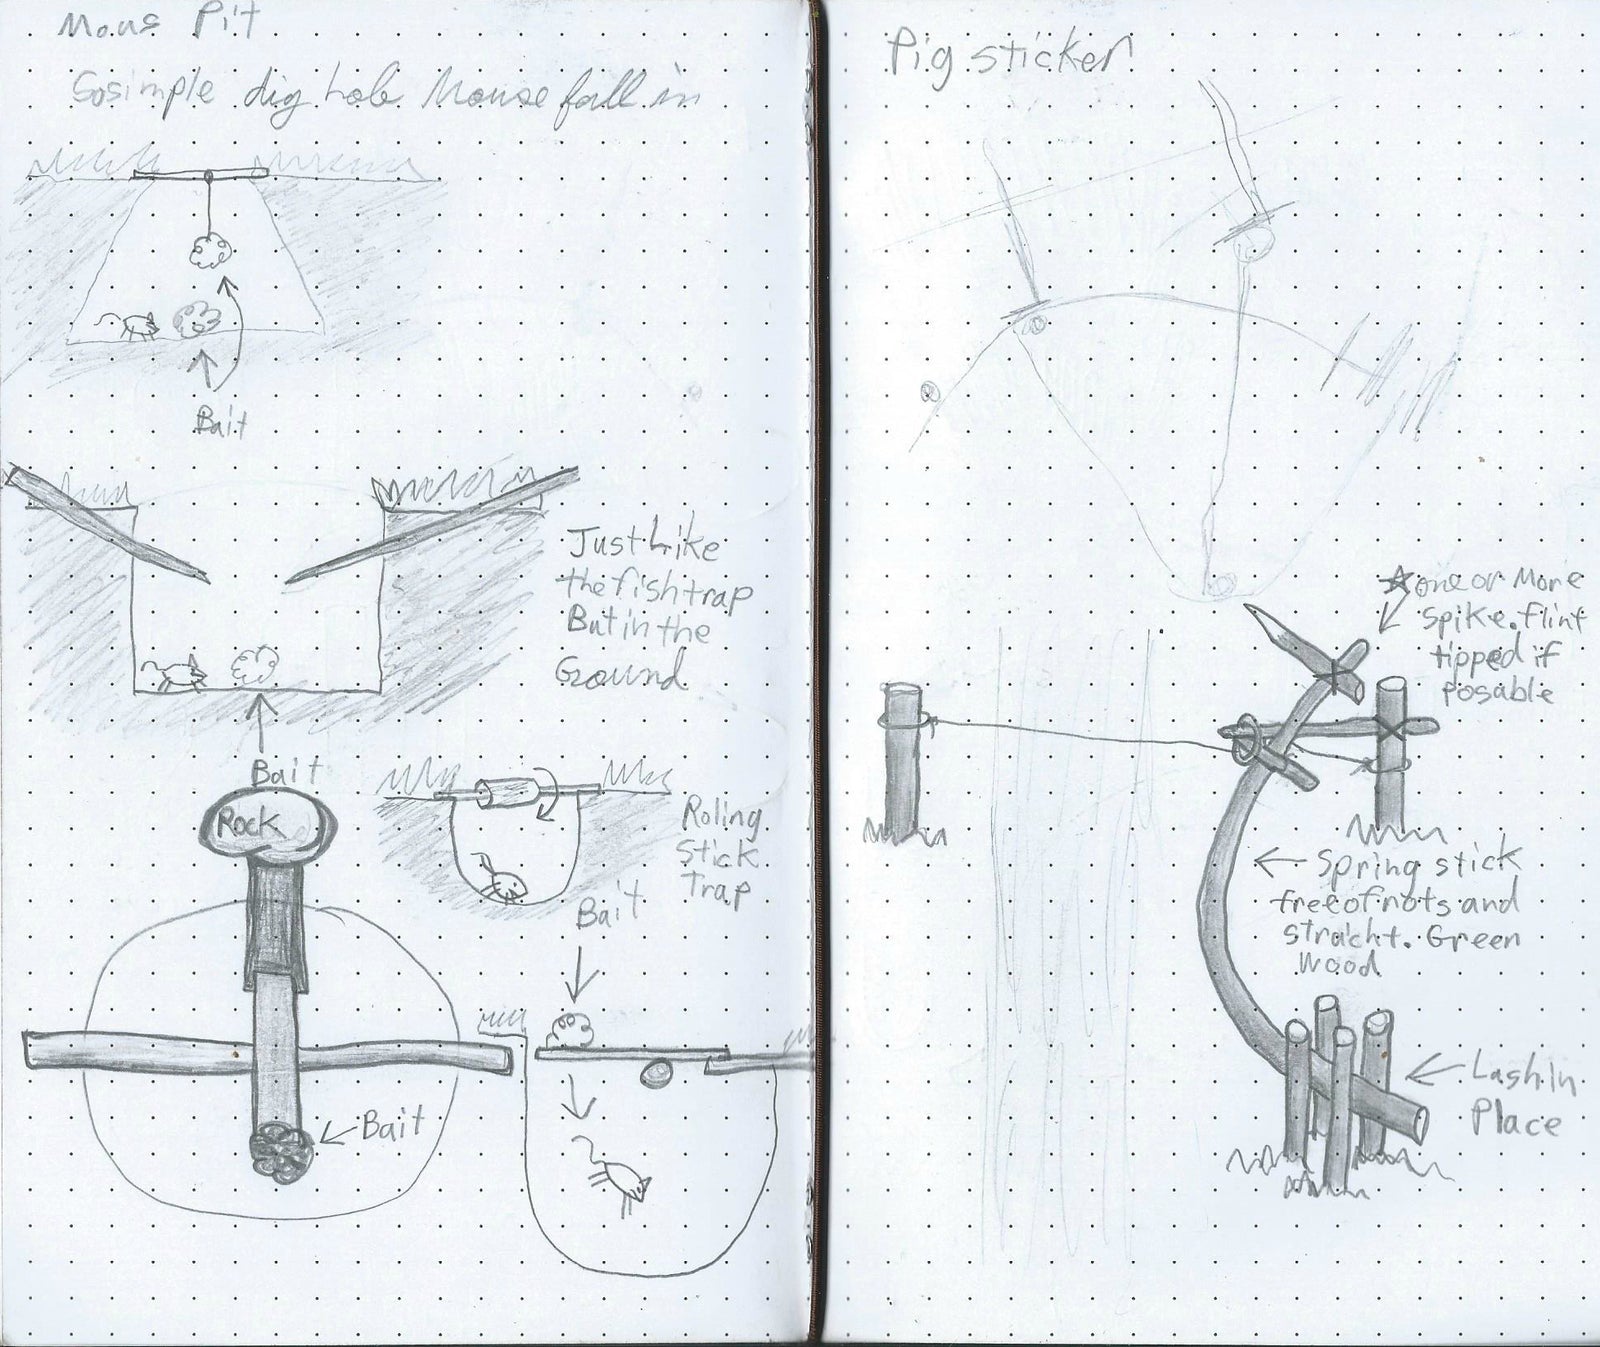 Mous Pit
So simple dig hole Mouse fall in
Bait
Just Like
the fish trap
But in the
Ground
Bait
Rock
Roling
Stick
Trap
Bait
Bait
Pig sticker
one or More
Spike. flint
tipped if
posable
Spring stick
free of nots and
stracht. Green
Wood
Lash In
Place